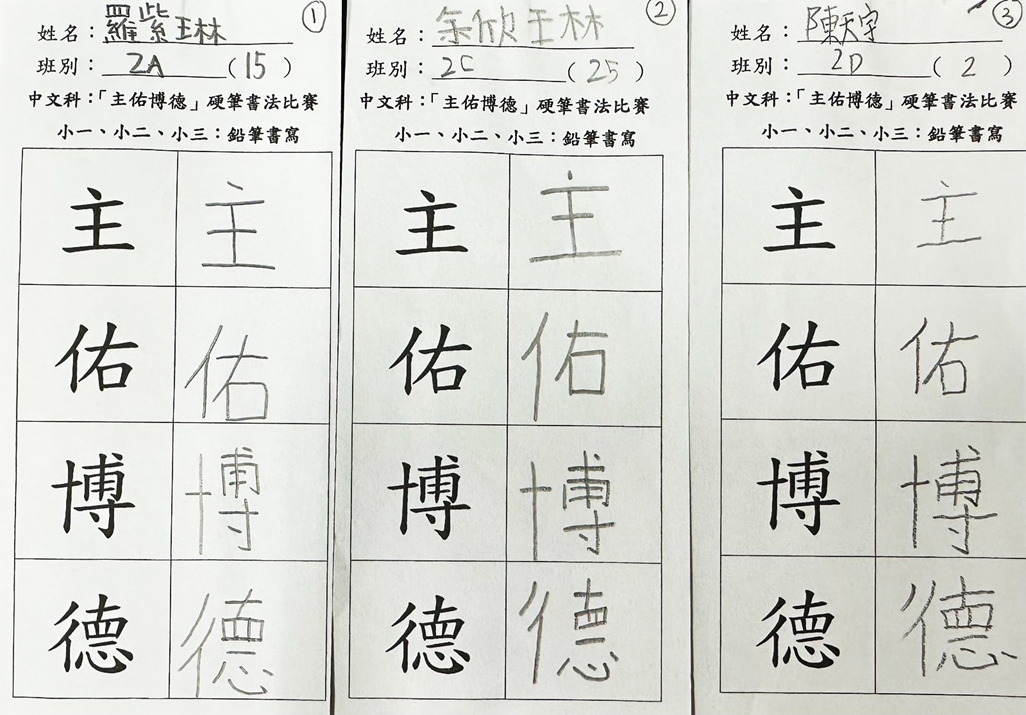 ①
姓名：羅紫琳
班別：2A（15）
中文科：「主佑博德」硬筆書法比賽
小一、小二、小三：鉛筆書寫
主 主
佑 佑
博 博
德 德
②
姓名：余欣琳
班別：2C（25）
中文科：「主佑博德」硬筆書法比賽
小一、小二、小三：鉛筆書寫
主 主
佑 佑
博 博
德 德
③
姓名：陳天宇
班別：2D（2）
中文科：「主佑博德」硬筆書法比賽
小一、小二、小三：鉛筆書寫
主 主
佑 佑
博 博
德 德